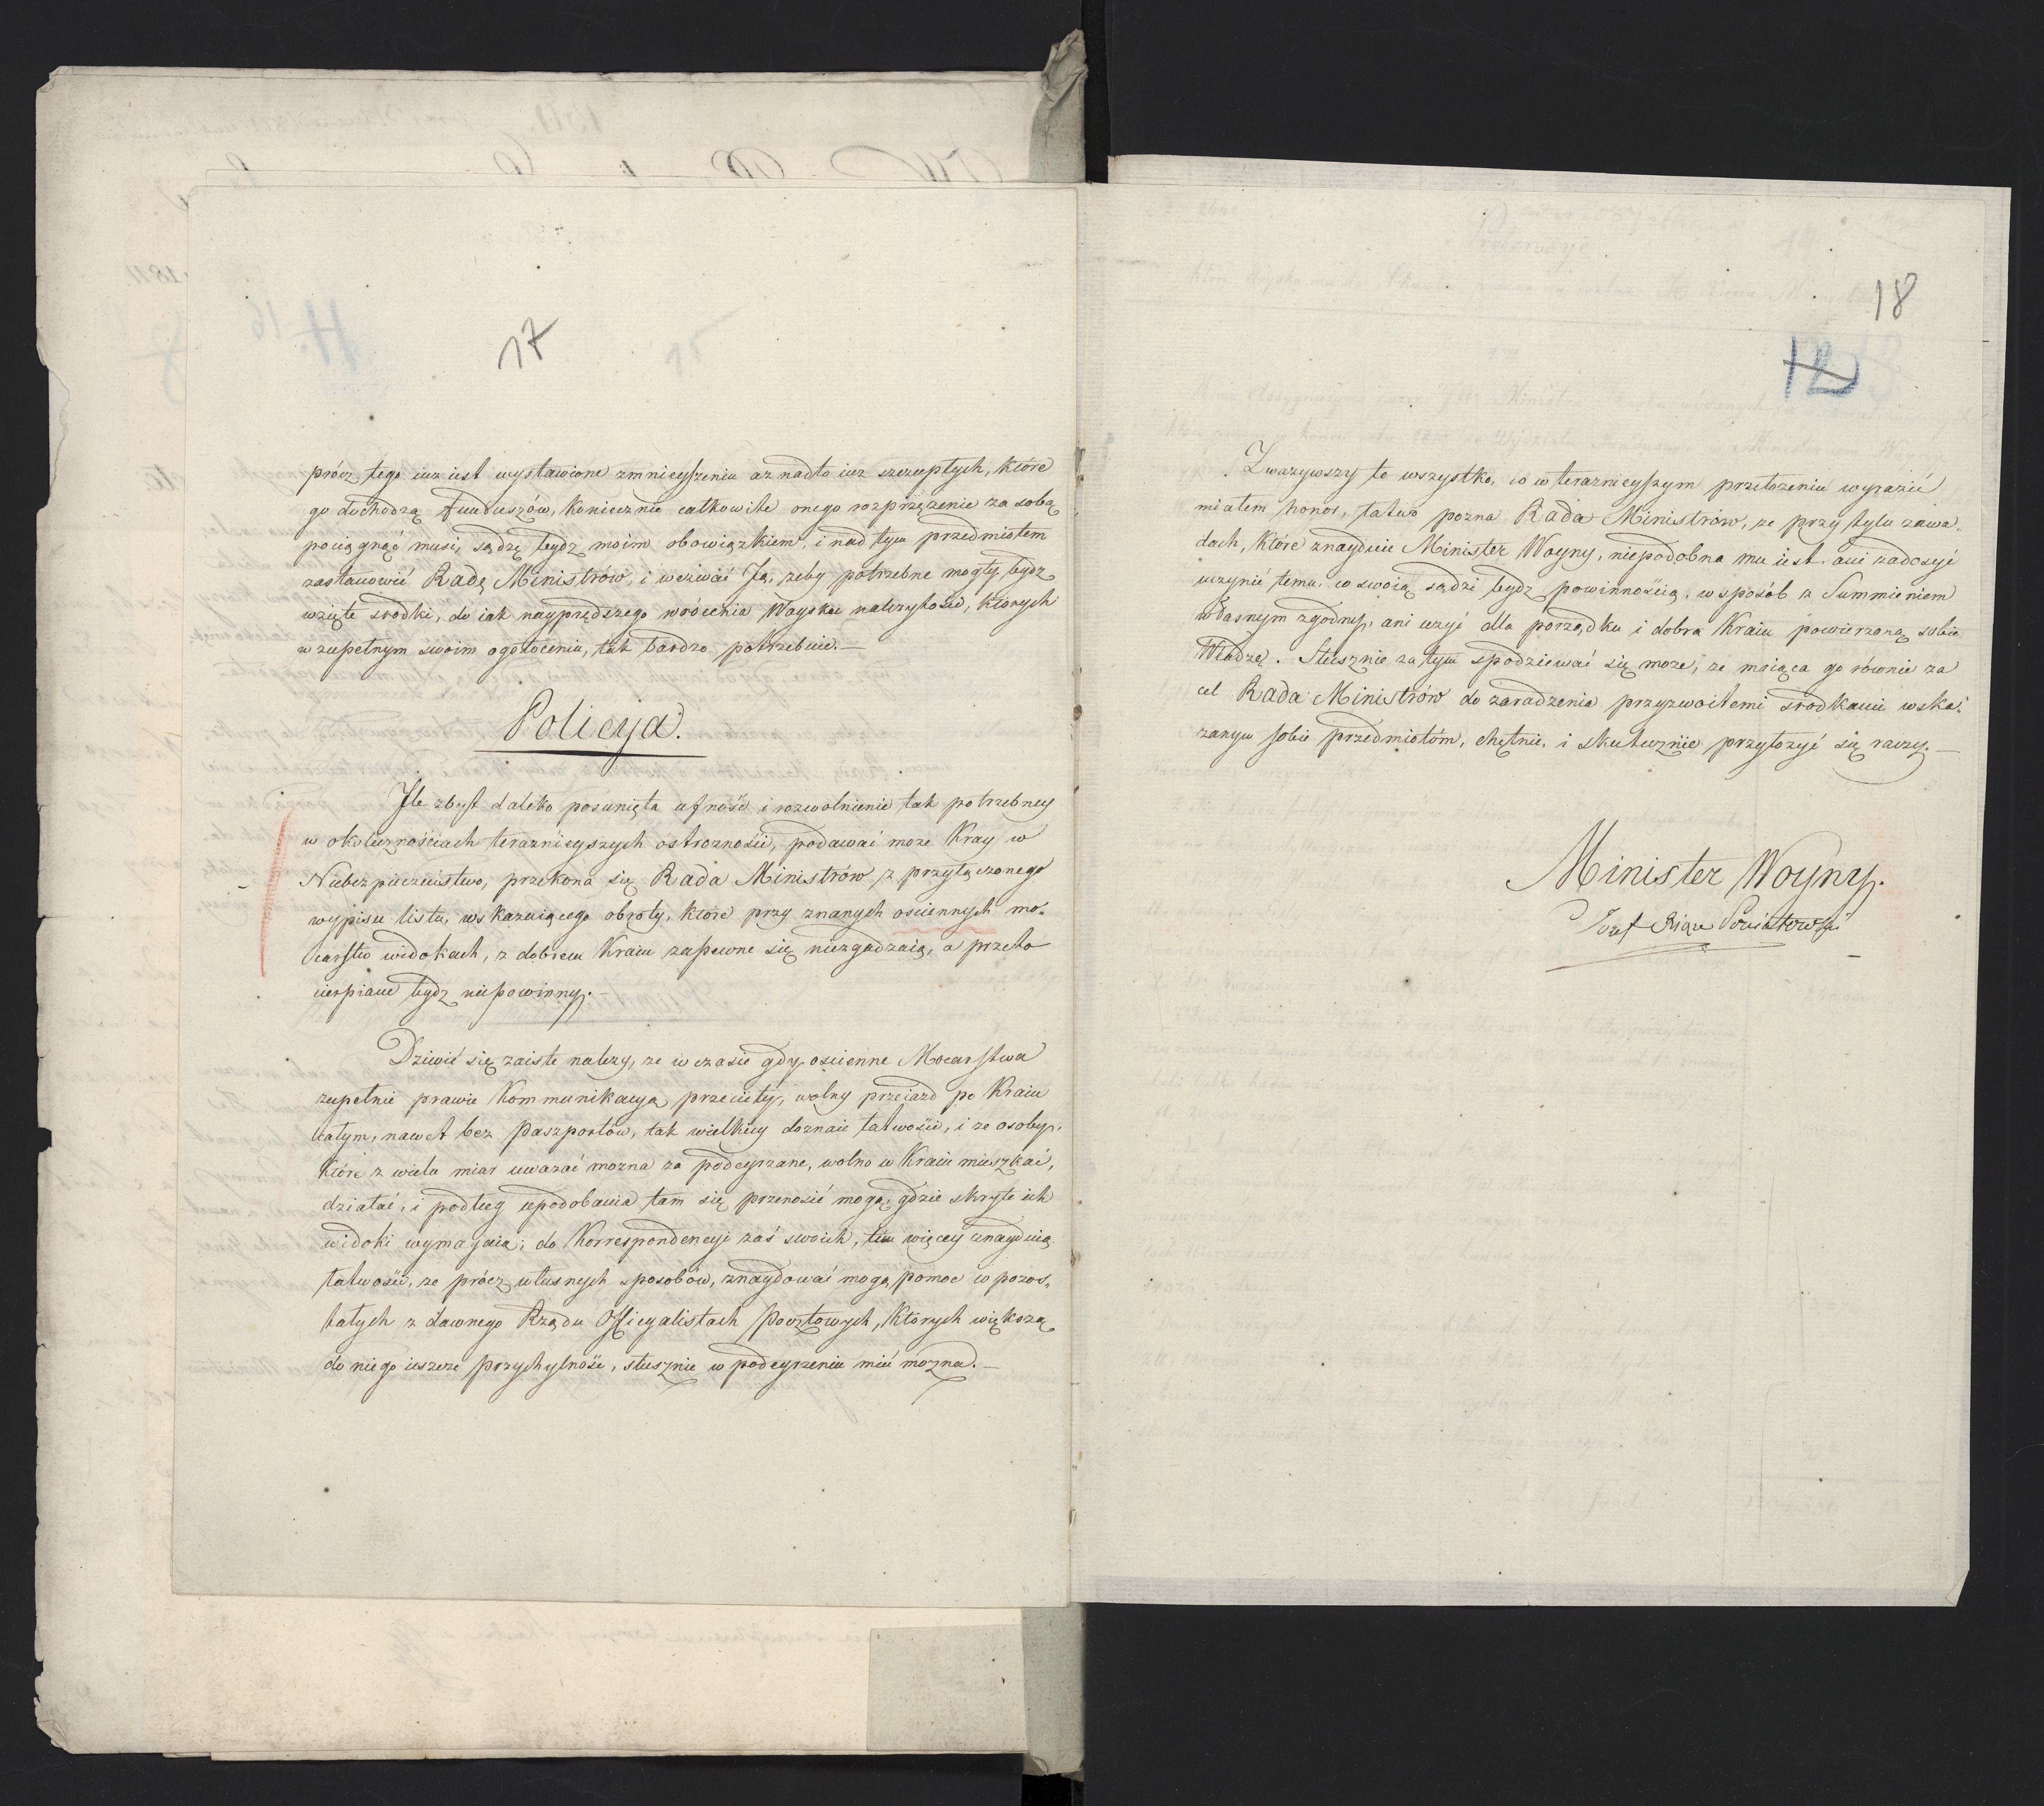 17
prócz tego iuż iest wystawione zmnieyszeniu aż nadto iuż szczupłych, które
go dochodzą Funduszów, koniecznie całkowite onego rozprzężenie za sobą
pociągnąć musi, sądzę bydź moim obowiązkiem, i nad tym przedmiotem
zastanowić Radę Ministrów, i wezwać Ją, żeby potrzebne mogły bydź
wzięte srodki, do iak nayprędszego wrócenia Woysku należytości, których
w zupełnym swoim ogołoceniu, tak bardzo potrzebuie.—
Policyia.
Ile zbyt daleko posunięta ufność i rozwolnienie tak potrzebney
w okolicznościach teraźnieyszych ostrożności, podawać może Kray w
Niebezpieczeństwo, przekona się Rada Ministrów z przyłączonego
wypisu listu, wskazuiącego obroty, które przy znanych osciennych mo„
carstw widokach, z dobrem Kraiu zapewne się niezgadzaią, a przeto
cierpiane bydź niepowinny.
Dziwić się zaiste należy, że w czasie gdy oscienne Mocarstwa
zupełnie prawie Kommunikacyą przecięły, wolny przeiazd po Kraiu
całym, nawet bez Paszportów, tak wielkiey doznaie łatwości, i że osoby,
które z wielu miar uważać można za podeyrzane, wolno w Kraiu mieszkać,
działać, i podług upodobania tam się przenosić mogą, gdzie skryte ich
widoki wymagaią; do Korrespondencyi zaś swoich, tém więcey znayduią
łatwości, że prócz własnych sposobów, znaydować mogą pomoc w pozos„
tałych z dawnego Rządu Officyalistach Pocztowych, których większą
do niego ieszcze przychylność, słusznie w podeyrzeniu mieć można.—
18
12
Zważywszy to wszystko, co w teraznieyszym przełożeniu wyrazić
miałem honor, łatwo pozna Rada Ministrów, że przy tylu zawa„
dach, które znayduie Minister Woyny, niepodobna mu iest, ani zadosyć
uczynić temu, co swoią sądzi bydź powinnością, w sposób z Summieniem
własnym zgodny, ani użyć dla porządku i dobra Kraiu powierzoną sobie
Władzę. Słusznie zatym spodziewać się może, że maiąca go równie za
cel Rada Ministrów do zaradzenia przyzwoitemi srodkami wska„
zanym sobie przedmiotóm, chętnie, i skutecznie przyłożyć się raczy.—
Minister Woyny.
Józef Xiąże Poniatowski